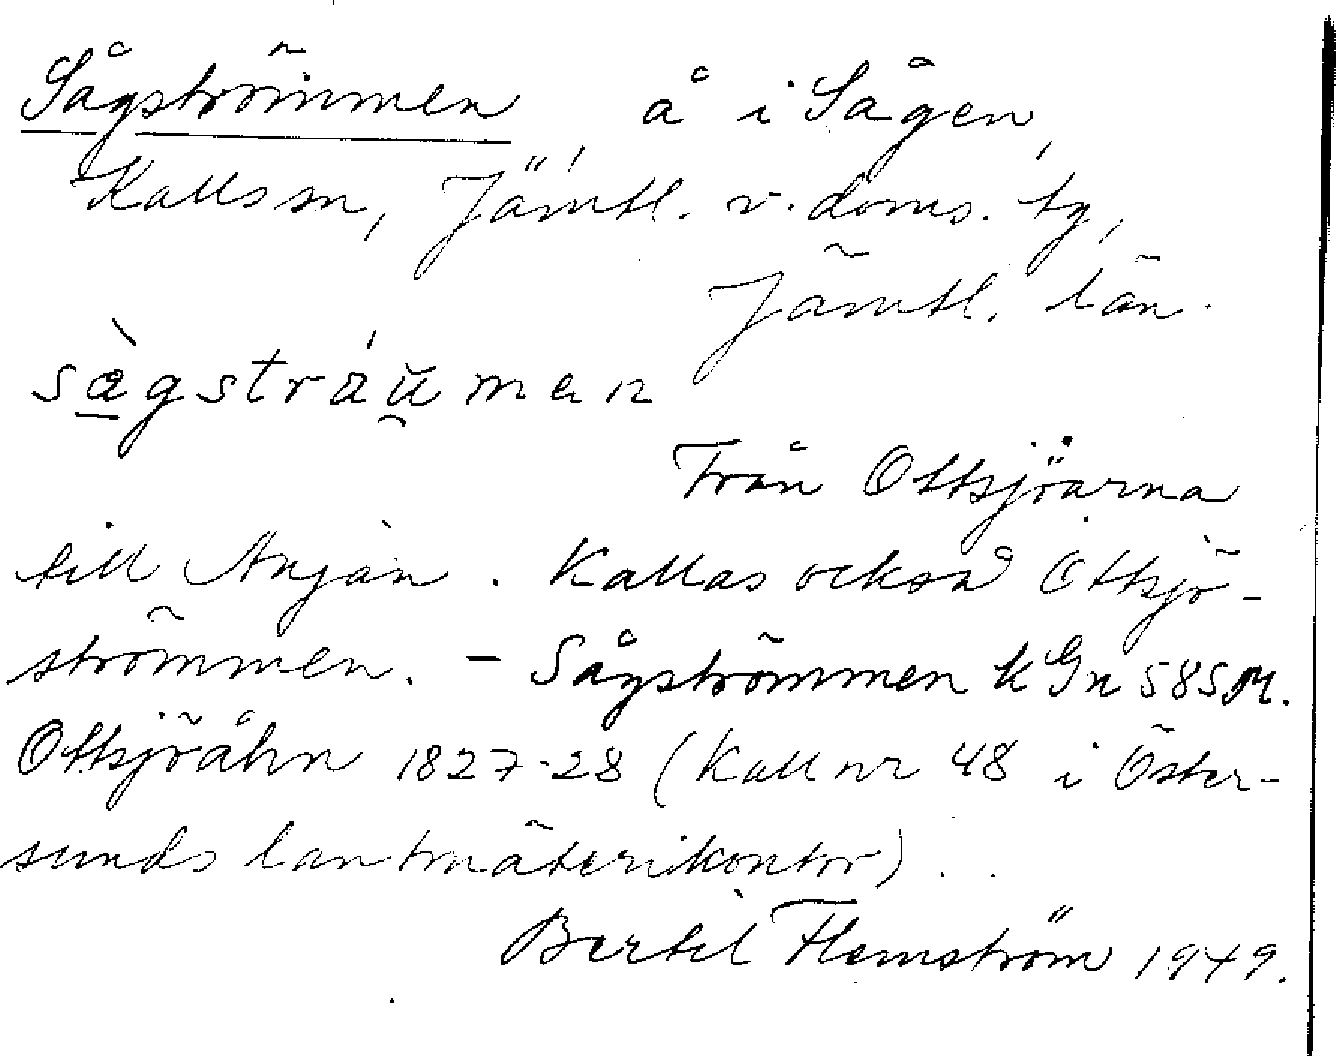 Sågströmmen, å i Sågen,
Kalls sn, Jämtl. v. doms. tg,
Jämtl. län.
Från Ottsjöarna
till Anjan. Kallas också Ottsjö-
strömmen. – Sågströmmen k Gn 585 M.
Ottsjöåhn 1827-28 (Kall nr 48 i Öster-
sunds lantmäterikontor).
Bertil Flemström 1949.